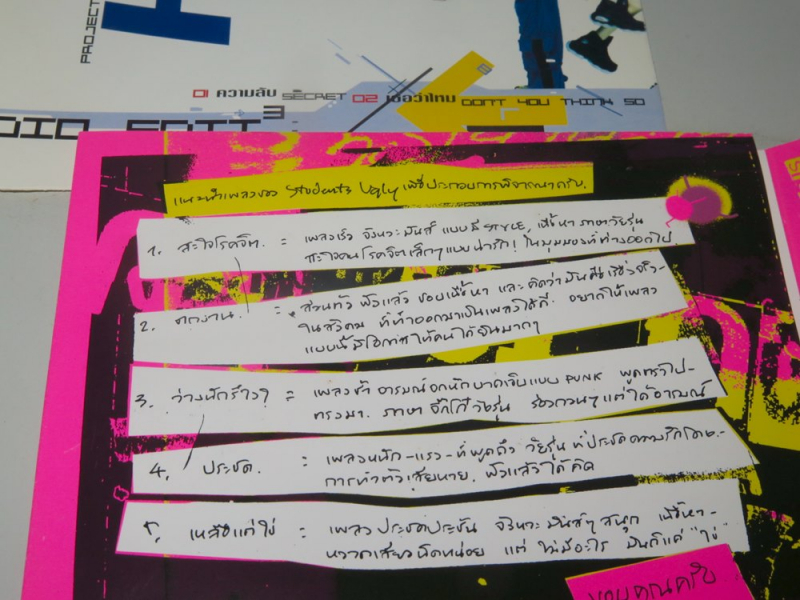 PROJECT
01 ความลับ SECRET 02 เธอว่าไหม DON'T YOU THINK SO
DIO EDIT 3
แนะนำเพลงของ Students Ugly เพื่อประกอบการพิจารณาครับ.
1. สะใจโรคจิต. = เพลงเร็ว จังหวะมันส์ แบบมี STYLE, เนื้อหา ภาษาวัยรุ่น
สะใจคนโรคจิตเล็กๆ แบบน่ารัก! ในมุมมองที่ต่างออกไป
2. ตกงาน. = ส่วนตัว ฟังแล้ว ชอบเนื้อหา และ คิดว่ามันคือเรื่องจริง-
ในสังคม ที่ทำออกมาเป็นเพลงได้ดี. อยากให้เพลง
แบบนี้มีโอกาสให้คนได้ยินมากๆ
3. ว่างนักรึไง? = เพลงช้า อารมณ์อกหักบาดเจ็บแบบ PUNK พูดตรงไป-
ตรงมา. ภาษา จิ๊กโก๋วัยรุ่น ร้องกวนๆ แต่ได้อารมณ์
4. ประชด. = เพลงหนัก-แรง-ที่พูดถึง วัยรุ่น ที่ประชดความรักโดย-
การทำตัวเสียหาย. ฟังแล้วได้คิด
5. เหลือแค่ไข่ = เพลงประชดประชัน จังหวะ มันส์ๆ สนุก เนื้อหา-
หวาดเสียวนิดหน่อย แต่ ไม่มีอะไร มันก็แค่ "ไข่"
ขอบคุณครับ